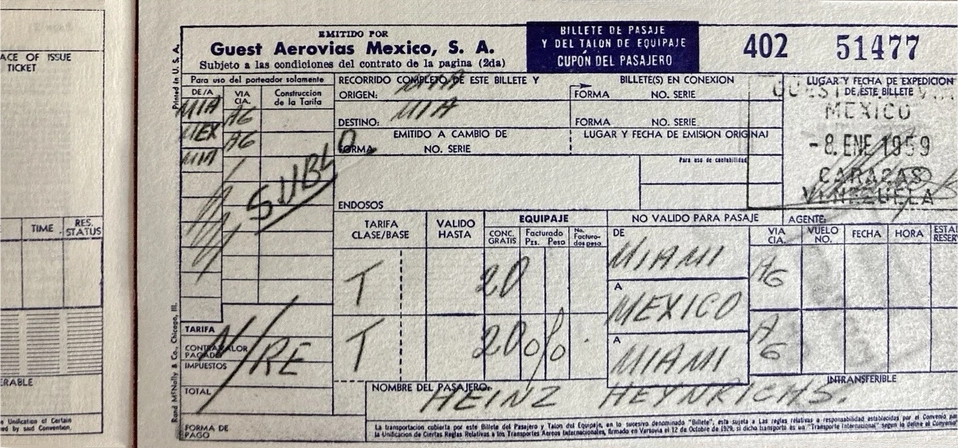 ACE OF ISSUE
TICKET
TIME
RES.
STATUS
ERABLE
e Unification of Certain
ed by said Convention.
Printed in U. S. A.
Rand McNally & Co., Chicago, Ill.
EMITIDO POR
Guest Aerovias Mexico, S. A.
Subjeto a las condiciones del contrato de la pagina (2da)
BILLETE DE PASAJE
Y DEL TALON DE EQUIPAJE
CUPÓN DEL PASAJERO
402 51477
Para uso del porteador solamente
DE/A
VIA
CIA.
Construccion
de la Tarifa
MIA AG
MEX AG
MIA
SUBLO
RECORRIDO COMPLETO DE ESTE BILLETE Y
BILLETE(S) EN CONEXION
ORIGEN: MIA
FORMA NO. SERIE
DESTINO: MIA
FORMA NO. SERIE
EMITIDO A CAMBIO DE
LUGAR Y FECHA DE EMISION ORIGINAL
FORMA NO. SERIE
Para uso de contabilidad
LUGAR Y FECHA DE EXPEDICION
DE ESTE BILLETE
MEXICO
-8. ENE 1959
CARACAS
VENEZUELA
ENDOSOS
TARIFA
CLASE/BASE
VALIDO
HASTA
EQUIPAJE
CONC.
GRATIS
Facturado
Pzs. Peso
No.
Facturo-
dos peso
NO VALIDO PARA PASAJE
AGENTE:
VIA
CIA.
VUELO
NO.
FECHA
HORA
ESTAD
RESERV
T 20 DE MIAMI AG
A MEXICO
T 20 A MIAMI AG
TARIFA
CONTRAVALOR
PAGADO
IMPUESTOS
TOTAL
N/RE
FORMA DE
PAGO
NOMBRE DEL PASAJERO:
INTRANSFERIBLE
HEINZ HEYNRICHS.
La transportación cubierta por este Billete del Pasajero y Talon del Equipaje, en lo sucesivo denominado "Billete", esta sujeta a las reglas relativas a responsabilidad establecidas por el Convenio para
la Unificación de Ciertas Reglas Relativas a los Transportes Aereos Internacionales, firmado en Varsovia el 12 de Octubre de 1929, si dicho transporte es un "Transporte Internacional" segun lo define el Convenio